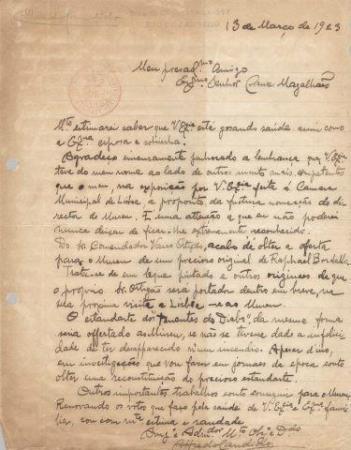 13 de Março de 1923
Meu prezadmo Amigo
Exmo Senhor Cruz Magalhães
Mto estimarei saber que V. Exia está gosando saúde assim como
a Exma esposa e sobrinha.
Agradeço immensamente penhorado a lembrança que V. Exia
teve do meu nome ao lado de outros muito mais competentes
que o meu, na exposição por V. Exia feita á Camara
Municipal de Lisboa, a proposito da futura nomeação de di-
rector do Museu. É uma attenção a que eu não poderei
nunca deixar de ficar-lhe extremamente reconhecido.
Do Sr. Comendador acabo de obter a oferta
para o Museu de um precioso original de Raphael Bordallo.
Trata-se de um leque pintado e outros originaes de que
o proprio Sr. Ortigão será portador dentro em breve, na
sua proxima visita a Lisboa e ao Museu.
O estandarte dos "Tenentes do Diabo", da mesma forma
seria offertado ao Museu, se não se tivesse dado a infelici-
dade de ter desapparecido n'um incendio. Apesar d'isso,
em investigações que vou fazer em jornaes da epoca conto
obter uma reconstituição do precioso estandarte.
Outros importantes trabalhos conto conseguir para o Museu.
Renovando os votos que faço pela saude de V. Exia e Exma fami-
lia, sou com mta estima e saudade
Amgo e Admdor Mto Obgdo
Alfredo Candido